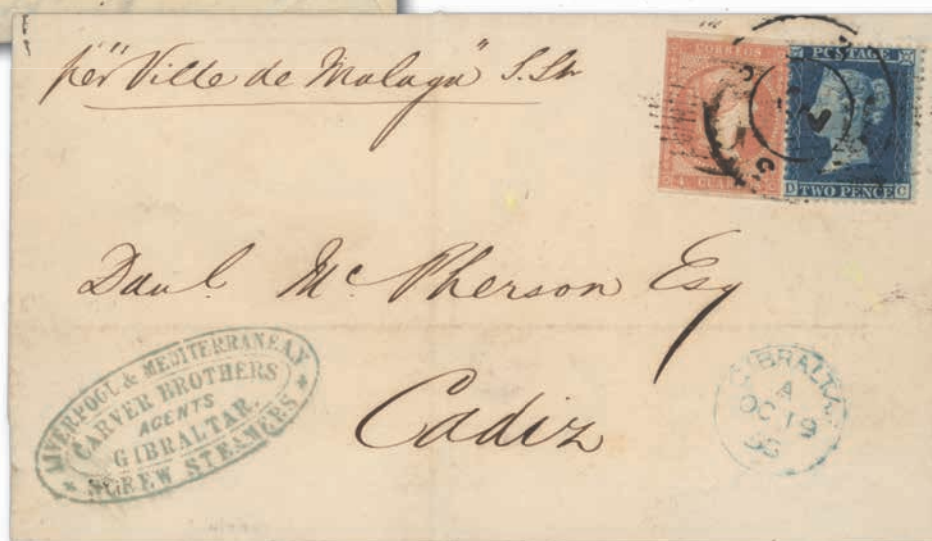 per "Ville de Malaga" S. Sh
CORREOS
4 CUARTOS
POSTAGE
D TWO PENCE C
Danl. Mc Pherson Esq
Cadiz
LIVERPOOL & MEDITERRANEAN
CARVER BROTHERS
AGENTS
GIBRALTAR.
* SCREW STEAMERS *
GIBRALTAR
A
OC 19